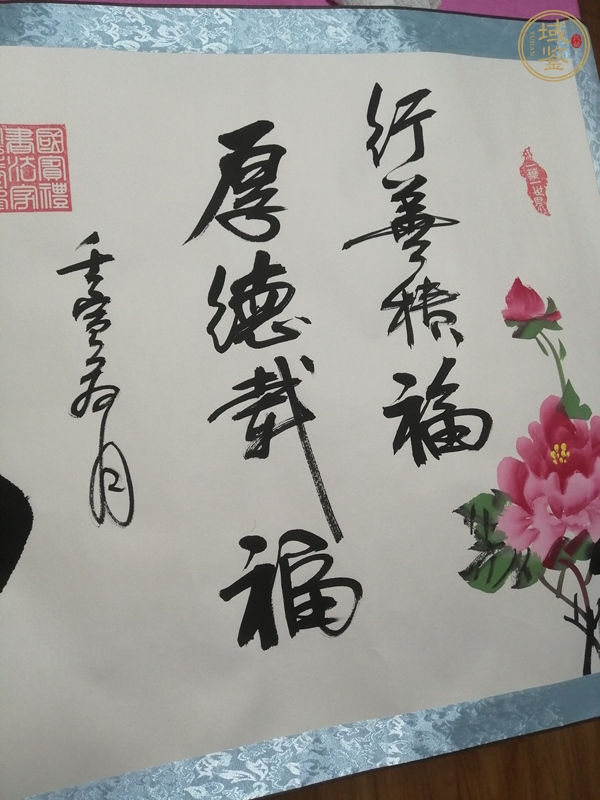 行善積福
厚德载福
壬寅年春月
國賓禮
書法家
一花一世界
域鉴
YUJIAN